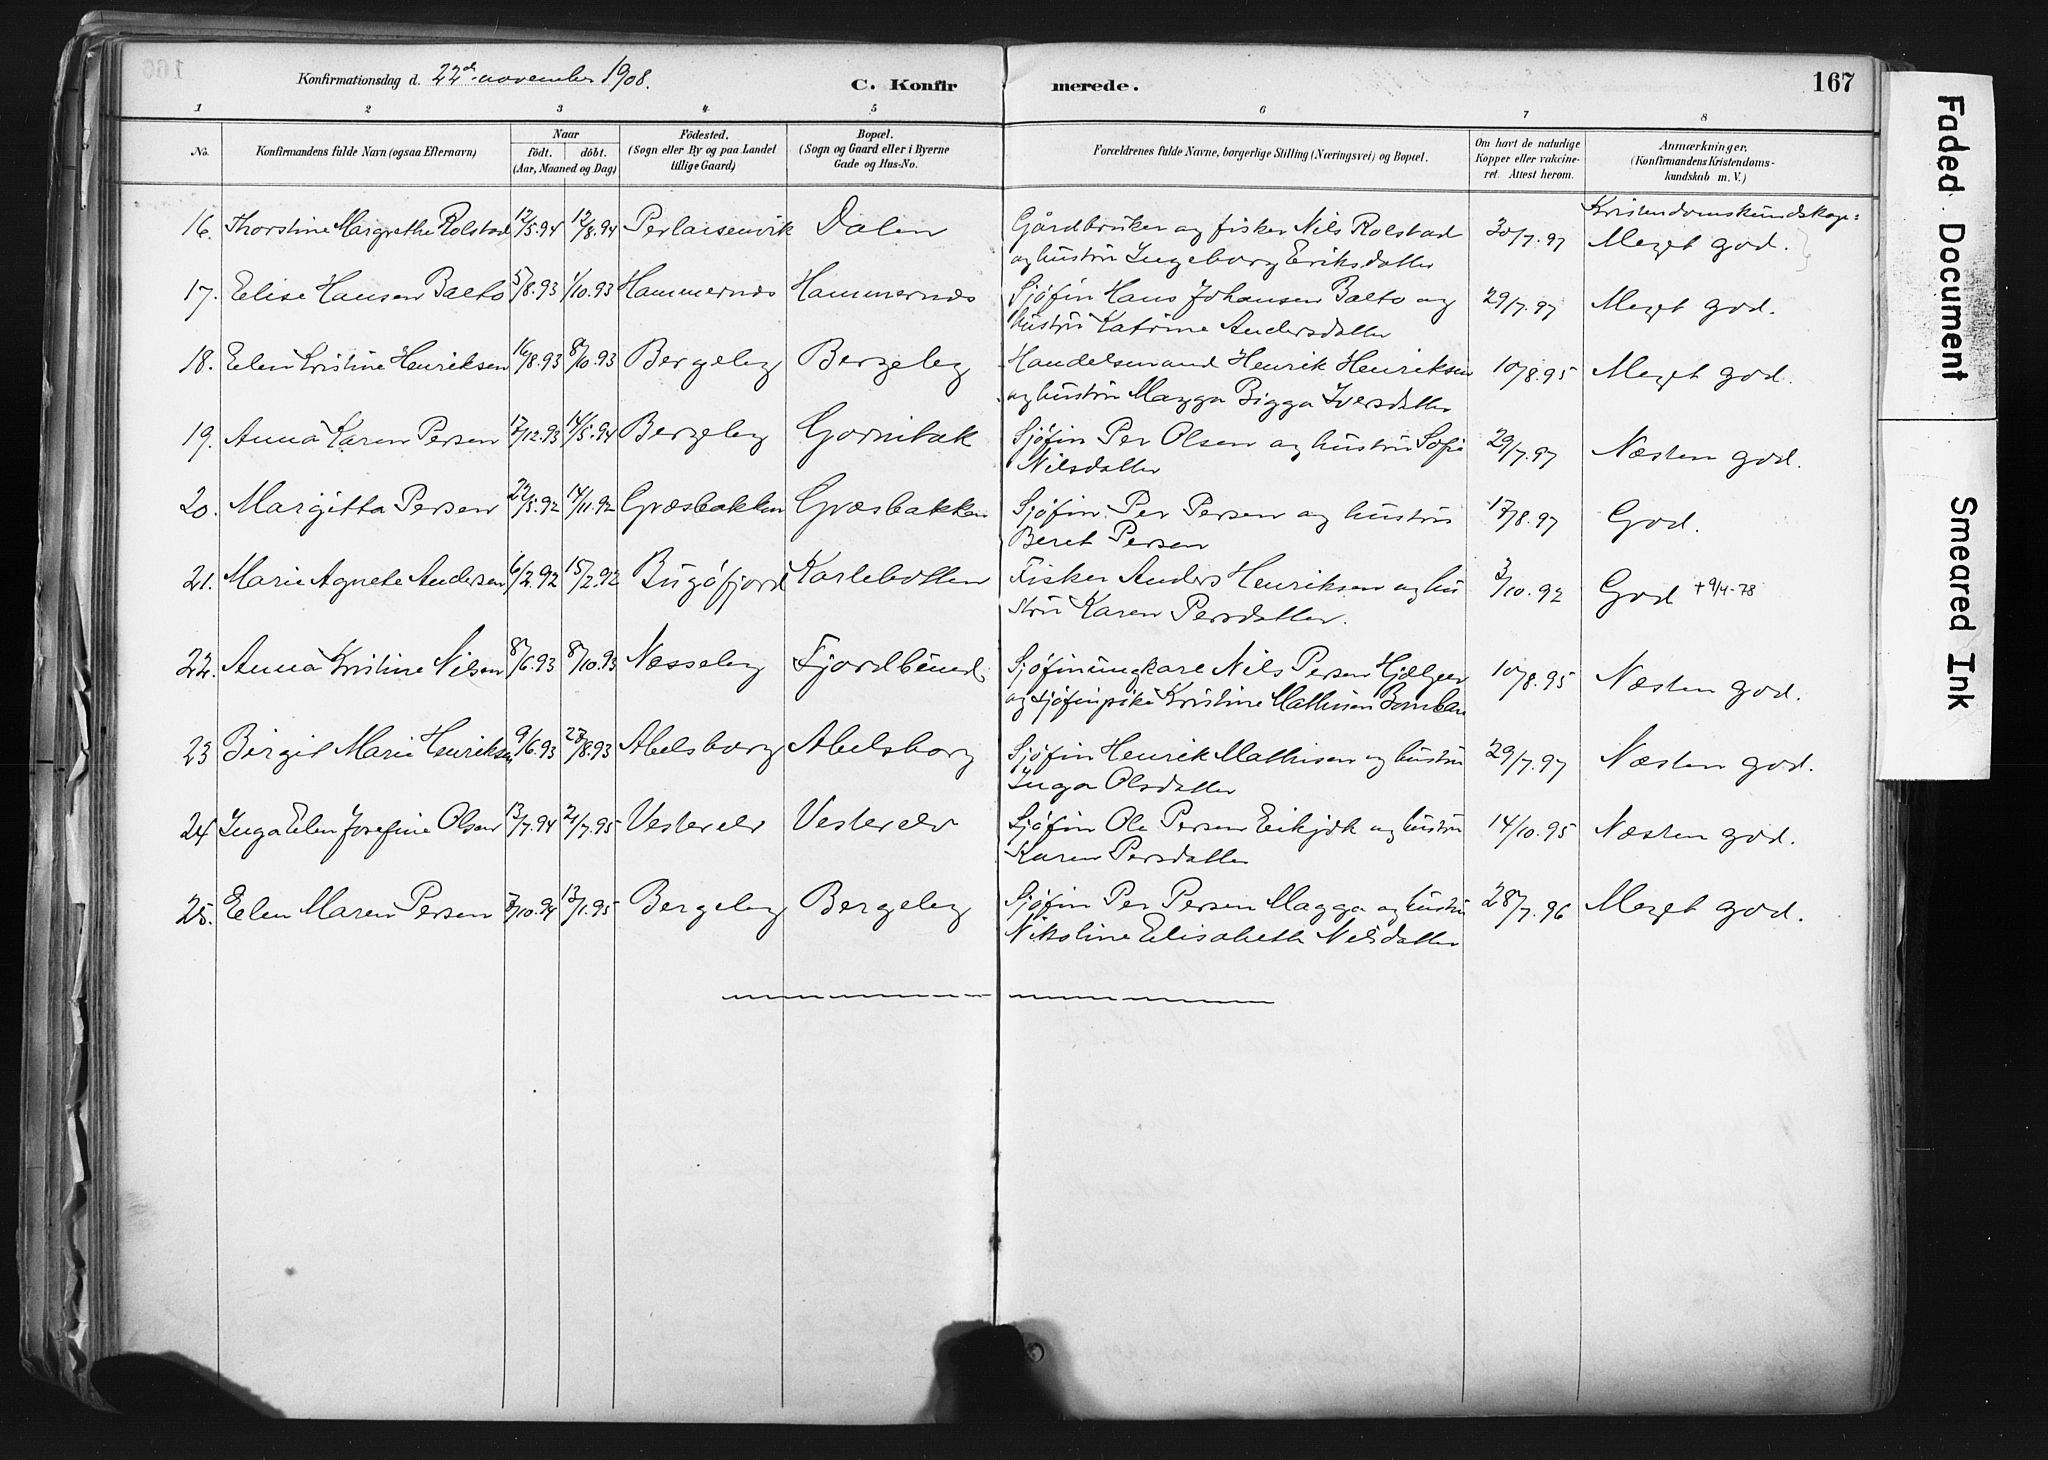 Konfirmationsdag d. 22de november 1908. C. Konfirmerede. 167
1 2 3 4 5 6 7 8
No. Konfirmandens fulde Navn (ogsaa Efternavn) Naar födt. döbt. (Aar, Maaned og Dag) Födested. (Sogn eller By og paa Landet tillige Gaard) Bopæl. (Sogn og Gaard eller i Byerne Gade og Hus-No. Forældrenes fulde Navne, borgerlige Stilling (Næringsvei) og Bopæl. Om havt de naturlige Kopper eller vaccineret. Attest herom. Anmærkninger, (Konfirmandens Kristendomskundskab m. V.)
Kristendomskundskap:
16. Thorstine Margrethe Rolstad 12/5.94 12/8.94 Perlaisenvik Dalen Gårdbruker og fisker Nils Rolstad 30/7.97 Meget god.
og hustru Ingeborg Eriksdatter
17. Elise Hansen Balto 5/8.93 1/10.93 Hammernæs Hammernæs Sjøfin Hans Johansen Balto og 29/7.97 Meget god.
hustru Katrine Andersdatter
18. Elen Kristine Henriksen 16/8.93 8/10.93 Bergeby Bergeby Handelsmand Henrik Henriksen 10/8.95 Meget god.
og hustru Magga Bigga Iversdatter
19. Anna Karen Persen 17/12.93 14/5.94 Bergeby Gornitak Sjøfin Per Olsen og hustru Sofie 29/7.97 Næsten god.
Nilsdatter
20. Margitta Persen 22/5.92 14/11.92 Græsbakken Græsbakken Sjøfin Per Persen og hustru 17/8.97 God.
Beret Persen
21. Marie Agnete Andersen 6/2.92 15/2.92 Bugøfjord Karlebotten Fisker Anders Henriksen og hu 3/10.92 God +9/4-78
stru Karen Persdatter.
22. Anna Kristine Nilsen 8/6.93 8/10.93 Næsseby Fjordbund Sjøfinungkare Nils Persen 10/8.95 Næsten god.
og sjøfinpike Kristine Mathisen
23 Birgit Marie Henriksen 9/6.93 27/8.93 Abelsborg Abelsborg Sjøfin Henrik Mathisen og hustru 29/7.97 Næsten god.
Inga Olsdatter
24 Inga Elen Josefine Olsen 13/7.94 21/7.95 Vesterelv Vesterelv Sjøfin Ole Persen og hustru 14/10.95 Næsten god.
Karen Persdatter
25. Elen Maren Persen 7/10.94 13/1.95 Bergeby Bergeby Sjøfin Per Persen Magga og hustru 28/7.96 Meget god.
Nikoline Elisabeth Nilsdatter
Faded Document
Smeared Ink